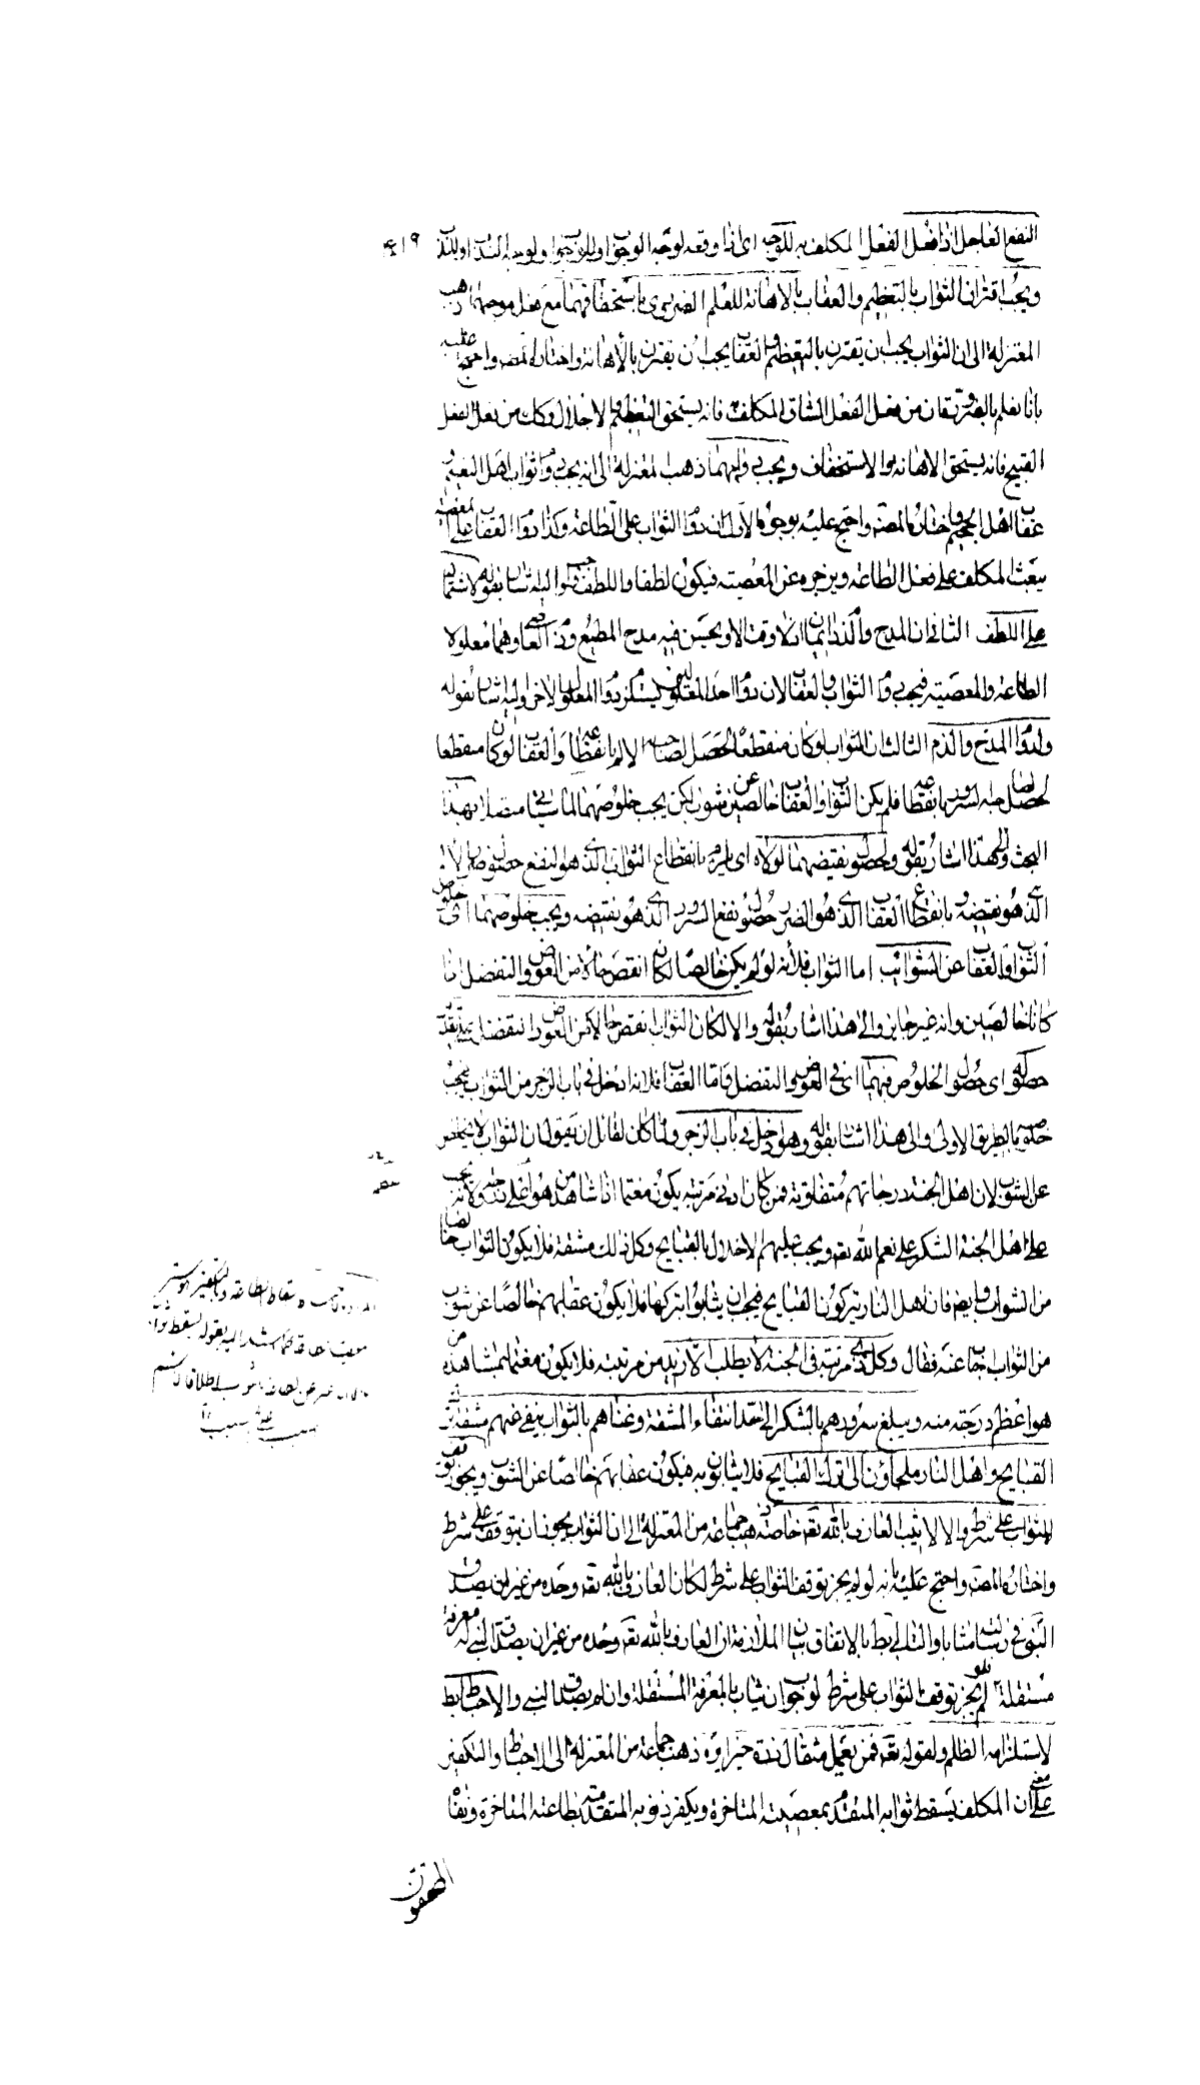 النفع العاجل اذا فعل الفعل المكلف به للوجه اى اذا اوقعه لوجه الوجوب او للوجوب او لوجه الندب او للندب ٤١٩
ويجب اقتران الثواب بالتعظيم والعقاب بالاهانة للعلم الضرورى باستحقاقهما مع فعل موجبهما ذهب
المعتزلة الى ان الثواب يجب ان يقترن بالتعظيم والعقاب يجب ان يقترن بالاهانة واختاره المصـ واحتج عليه
بانا نعلم بالضرورة ان من فعل الفعل الشاق المكلف به فانه يستحق التعظيم والاجلال وكل من فعل الفعل
القبيح فانه يستحق الاهانة والاستخفاف ويجب دوامهما ذهب المعتزلة الى انه يجب دوام ثواب اهل النعيم
عقاب اهل الجحيم واختاره المصـ واحتج عليه بوجوه الاول ان دوام الثواب على الطاعة وكذا دوام العقاب على المعصية
يبعث المكلف على فعل الطاعة ويزجره عن المعصية فيكون لطفا واللطف واجب واليه اشار بقوله لاشتماله
على اللطف الثانى ان المدح والذم دائمان اذ لا وقت الا ويحسن فيه مدح المطيع وذم العاصى وهما معلولا
الطاعة والمعصية فيجب دوام الثواب والعقاب لان دوام احد المعلولين يستلزم دوام المعلول الاخر واليه اشار بقوله
ولدوام المدح والذم الثالث ان الثواب لو كان منقطعا لحصل لصاحبه الالم بانقطاعه والعقاب لو كان منقطعا
لحصل لصاحبه السرور بانقطاعه فلم يكن الثواب والعقاب خالصين عن شوب لكن يجب خلوصهما لما سيأتى متصلا بهذا
البحث والى هذا اشار بقوله ولحصول نقيضهما لولاه اى يلزم بانقطاع الثواب الذى هو النفع حصول ضرر الالم
الذى هو نقيضه وبانقطاع العقاب الذى هو الضرر حصول نفع السرور الذى هو نقيضه ويجب خلوصهما اى خلوص
الثواب والعقاب عن الشوائب اما الثواب فلانه لو لم يكن خالصا لكان انقص حالا من العوض والتفضل اذا
كانا خالصين وانه غير جايز والى هذا اشار بقوله والا لكان الثواب انقص حالا من العوض والتفضل على تقدير
حصوله اى حصول الخلوص فيهما اى فى العوض والتفضل واما العقاب فلانه ادخل فى باب الزجر من الثواب فيجب
خلوصه بالطريق الاولى والى هذا اشار بقوله وهو ادخل فى باب الزجر ولما كان لقائل ان يقول ان الثواب لا يخلص
عن الشوب لان اهل الجنة درجاتهم متفاوتة فمن كان ادنى مرتبة يكون مغتما اذا شاهد من هو اعلى درجة ولانه يجب
على اهل الجنة الشكر على نعم الله تعـ ويجب عليهم الاخلال بالقبايح وكل ذلك مشقة فلا يكون الثواب خالصا
من الشوب وايضا فان اهل النار يتركون القبايح فيجب ان يثابوا بتركها فلا يكون عقابهم خالصا عن شوب
من الثواب اجاب عنه فقال وكل ذى مرتبة فى الجنة لا يطلب الازيد من مرتبته فلا يكون مغتما بمشاهدة من
هو اعظم درجة منه ويبلغ سرورهم بالشكر الى حد انتفاء المشقة وغناهم بالثواب ينفى عنهم مشقة ترك
القبايح واهل النار ملجأون الى ترك القبايح فلا يثابون به فيكون عقابهم خالصا عن الشوب ويجوز توقف
الثواب على شرط والا لاثيب العارف بالله تعـ خاصة ذهب جماعة من المعتزلة الى ان الثواب يجوز ان يتوقف على شرط
واختاره المصـ واحتج عليه بانه لو لم يجز توقف الثواب على شرط لكان العارف بالله تعـ وحده من غير ان يصدق
النبى فى رسالته مثابا والتالى بط بالاتفاق بيان الملازمة ان العارف بالله تعـ وحده من غير ان يصدق النبى له معرفة
مستقلة فلو لم يجز توقف الثواب على شرط لوجب ان يثاب بالمعرفة المستقلة وان لم يصدق النبى والاحباط بط
لاستلزامه الظلم ولقوله تعـ فمن يعمل مثقال ذرة خيرا يره ذهب جماعة من المعتزلة الى الاحباط والتكفير
على معنى ان المكلف يسقط ثوابه المتقدم بمعصيته المتاخرة ويكفر ذنوبه المتقدمة بطاعته المتاخرة ونفاه
المحققون